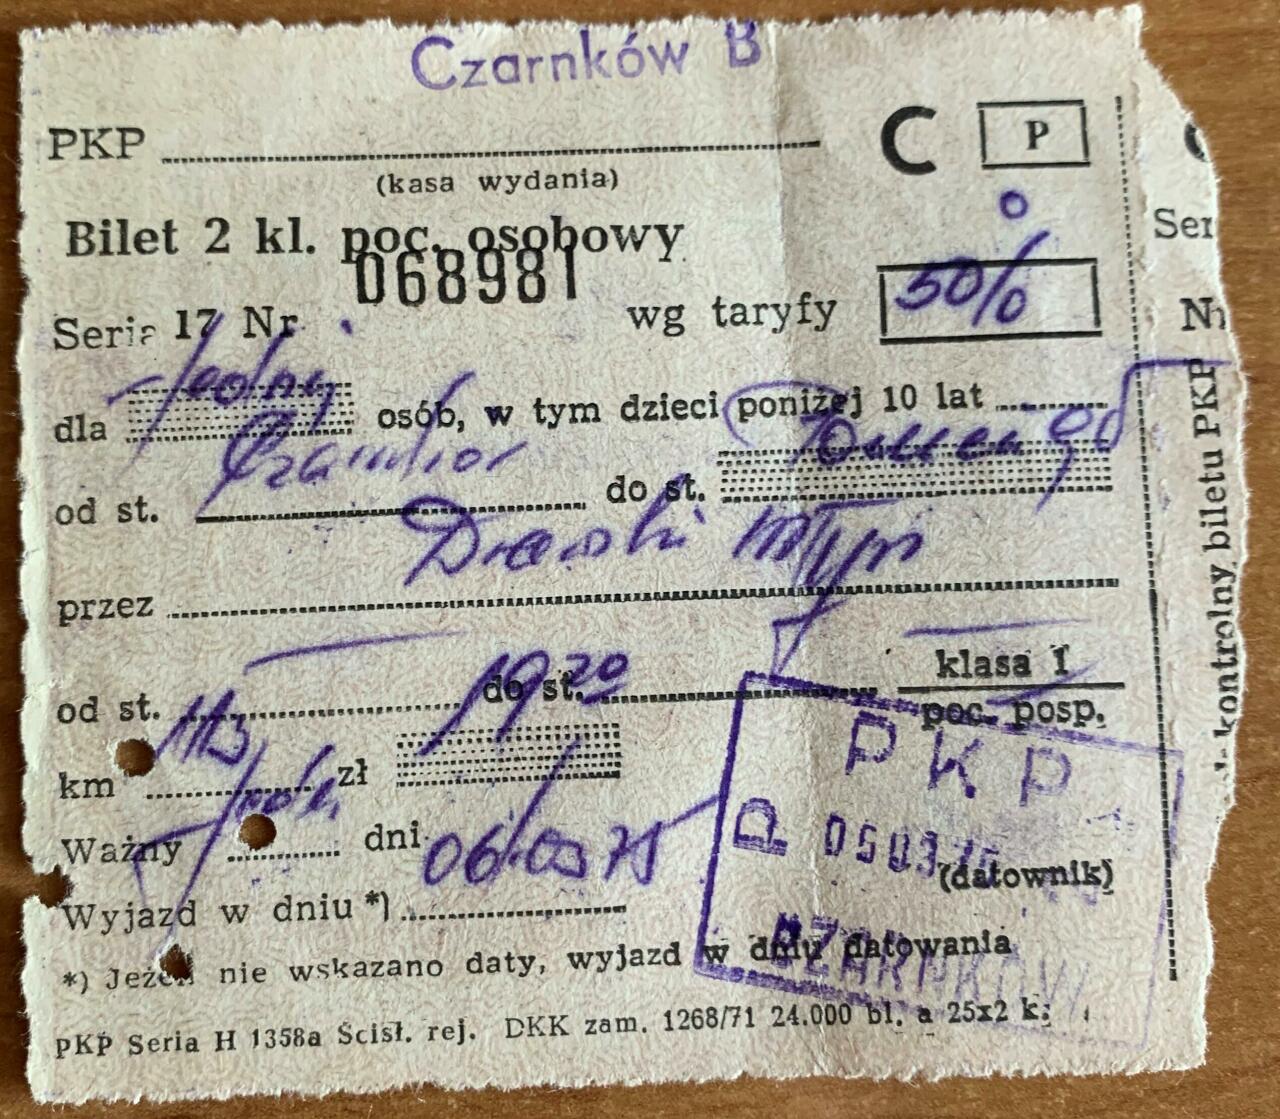 Czarnków B
PKP C P
(kasa wydania)
Bilet 2 kl. poc. osobowy
068981
Seria 17 Nr wg taryfy 50%
dla osób, w tym dzieci poniżej 10 lat
od st. do st.
Drawski Młyn
przez
od st. do st. klasa I
poc. posp.
km 113 zł 19 20
Ważny dni
Wyjazd w dniu *) 06.03 75
PKP
(datownik)
CZARNKÓW
*) Jeżeli nie wskazano daty, wyjazd w dniu datowania
PKP Seria H 1358a Ścisł. rej. DKK zam. 1268/71 24.000 bl. a 25x2 k.
Ser
Nr
kontrolny biletu PKP